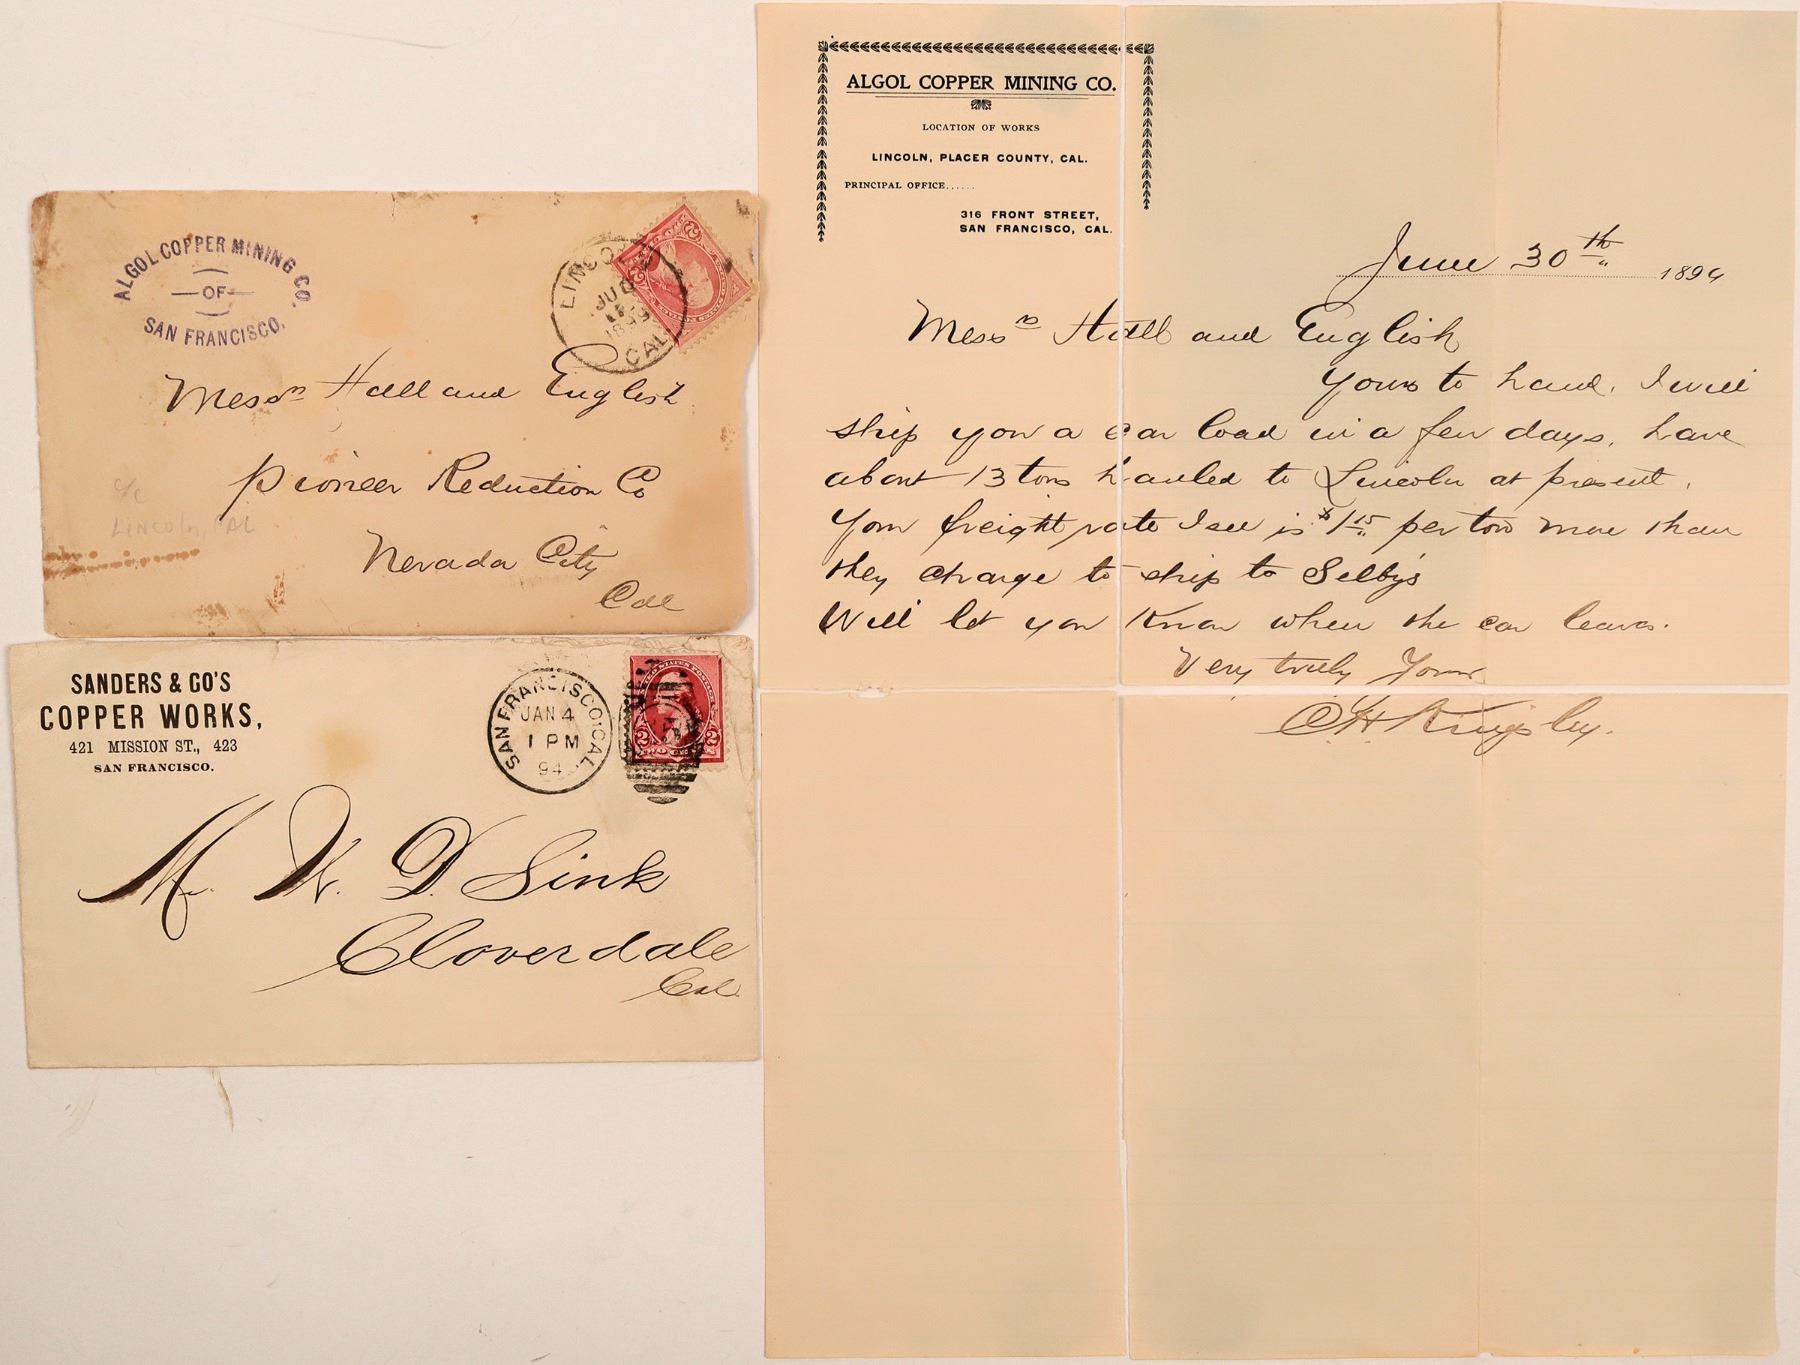 ALGOL COPPER MINING CO.
OF
SAN FRANCISCO.
LINCOLN
1899
CAL
Messrs Hall and English
Pioneer Reduction Co
Nevada City
Cal
c/c
LINCOLN, CAL
SANDERS & CO'S
COPPER WORKS,
421 MISSION ST., 423
SAN FRANCISCO.
SAN FRANCISCO, CAL.
JAN 4
1 PM
94
Mr. W. D. Sink
Cloverdale
Cal.
ALGOL COPPER MINING CO.
LOCATION OF WORKS
LINCOLN, PLACER COUNTY, CAL.
PRINCIPAL OFFICE......
316 FRONT STREET,
SAN FRANCISCO, CAL.
June 30th 1899
Messrs Hall and English
Yours to hand. I will
ship you a car load in a few days. have
about 13 tons hauled to Lincoln at present.
Your freight rate I see is $1 15 per ton more than
they charge to ship to Selby's
Will let you know when the car leaves.
Very truly Yours
C H Kingsley.